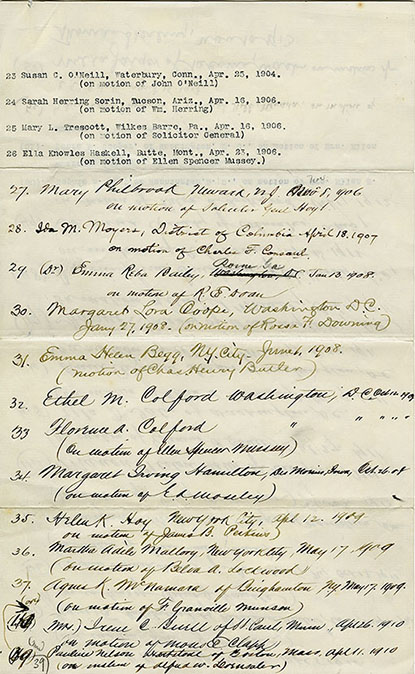 23 Susan C. O'Neill, Waterbury, Conn., Apr. 25, 1904.
(on motion of John O'Neill)
24 Sarah Herring Sorin, Tucson, Ariz., Apr. 16, 1906.
(on motion of Wm. Herring)
25 Mary L. Trescott, Wilkes Barre, Pa., Apr. 16, 1906.
(on motion of Solicitor General)
26 Ella Knowles Haskell, Butte, Mont., Apr. 23, 1906.
(on motion of Ellen Spencer Mussey.)
27. Mary Philbrook Newark, NJ 1906
on motion of Solicitor Genl Hoyt
28. Ida M. Moyers, District of Columbia April 18, 1907
on motion of Charles F. Consaul.
29 (Dr) Emma Reba Bailey, Jan 13. 1908.
on motion of R. E. Doan
30. Margaret Lora Cooper, Washington D.C.
Jany 27, 1908. (on motion of Rossa F. Downing)
31. Emma Helen Begg, N.Y. City. June 1, 1908.
(motion of Chas. Henry Butler)
32. Ethel M. Colford Washington, D.C. Oct 12
33 Florence A. Colford " " " "
(on motion of Ellen Spencer Mussey)
34. Margaret Irving Hamilton, Des Moines, Iowa, Oct. 26
(on motion of Ed Moseley)
35. Helen K. Hoy New York City, Apl 12. 1909
on motion of James B. Perkins)
36. Martha Adele Mallory, New York City, May 17. 1909
(on motion of Belva A. Lockwood
37. Agnes K. McNamara of Binghamton NY May 17. 1909.
(on motion of F. Granville Munson)
Mrs. Irene C. Buell of St. Paul, Minn., Apl 26. 1910
(on motion of Moses E. Clapp
39 Pauline Nelson of Boston, Mass. Apl. 11. 1910
(on motion of